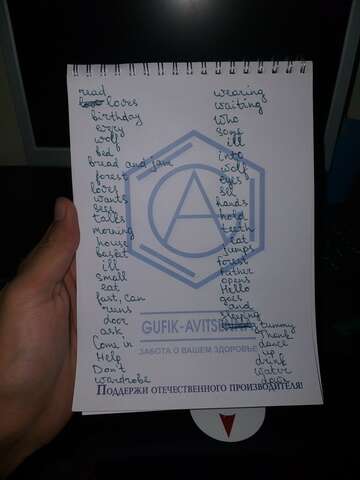 read
loves
birthday
wolf
bed
bread and jam
forest
loves
wants
sees
talks
morning
house
basket
ill
small
eat
fast, can
runs
door
ask
Come in
Help
Don't
wardrobe
wearing
waiting
Who
some
ill
into
wolf
eyes
hands
hold
teeth
eat
jumps
forest
father
opens
Hello
goes
and
sleeping
tummy
Thank
dance
up
drink
water
GUFIK-AVITSENNA
ЗАБОТА О ВАШЕМ ЗДОРОВЬЕ
ПОДДЕРЖИ ОТЕЧЕСТВЕННОГО ПРОИЗВОДИТЕЛЯ!